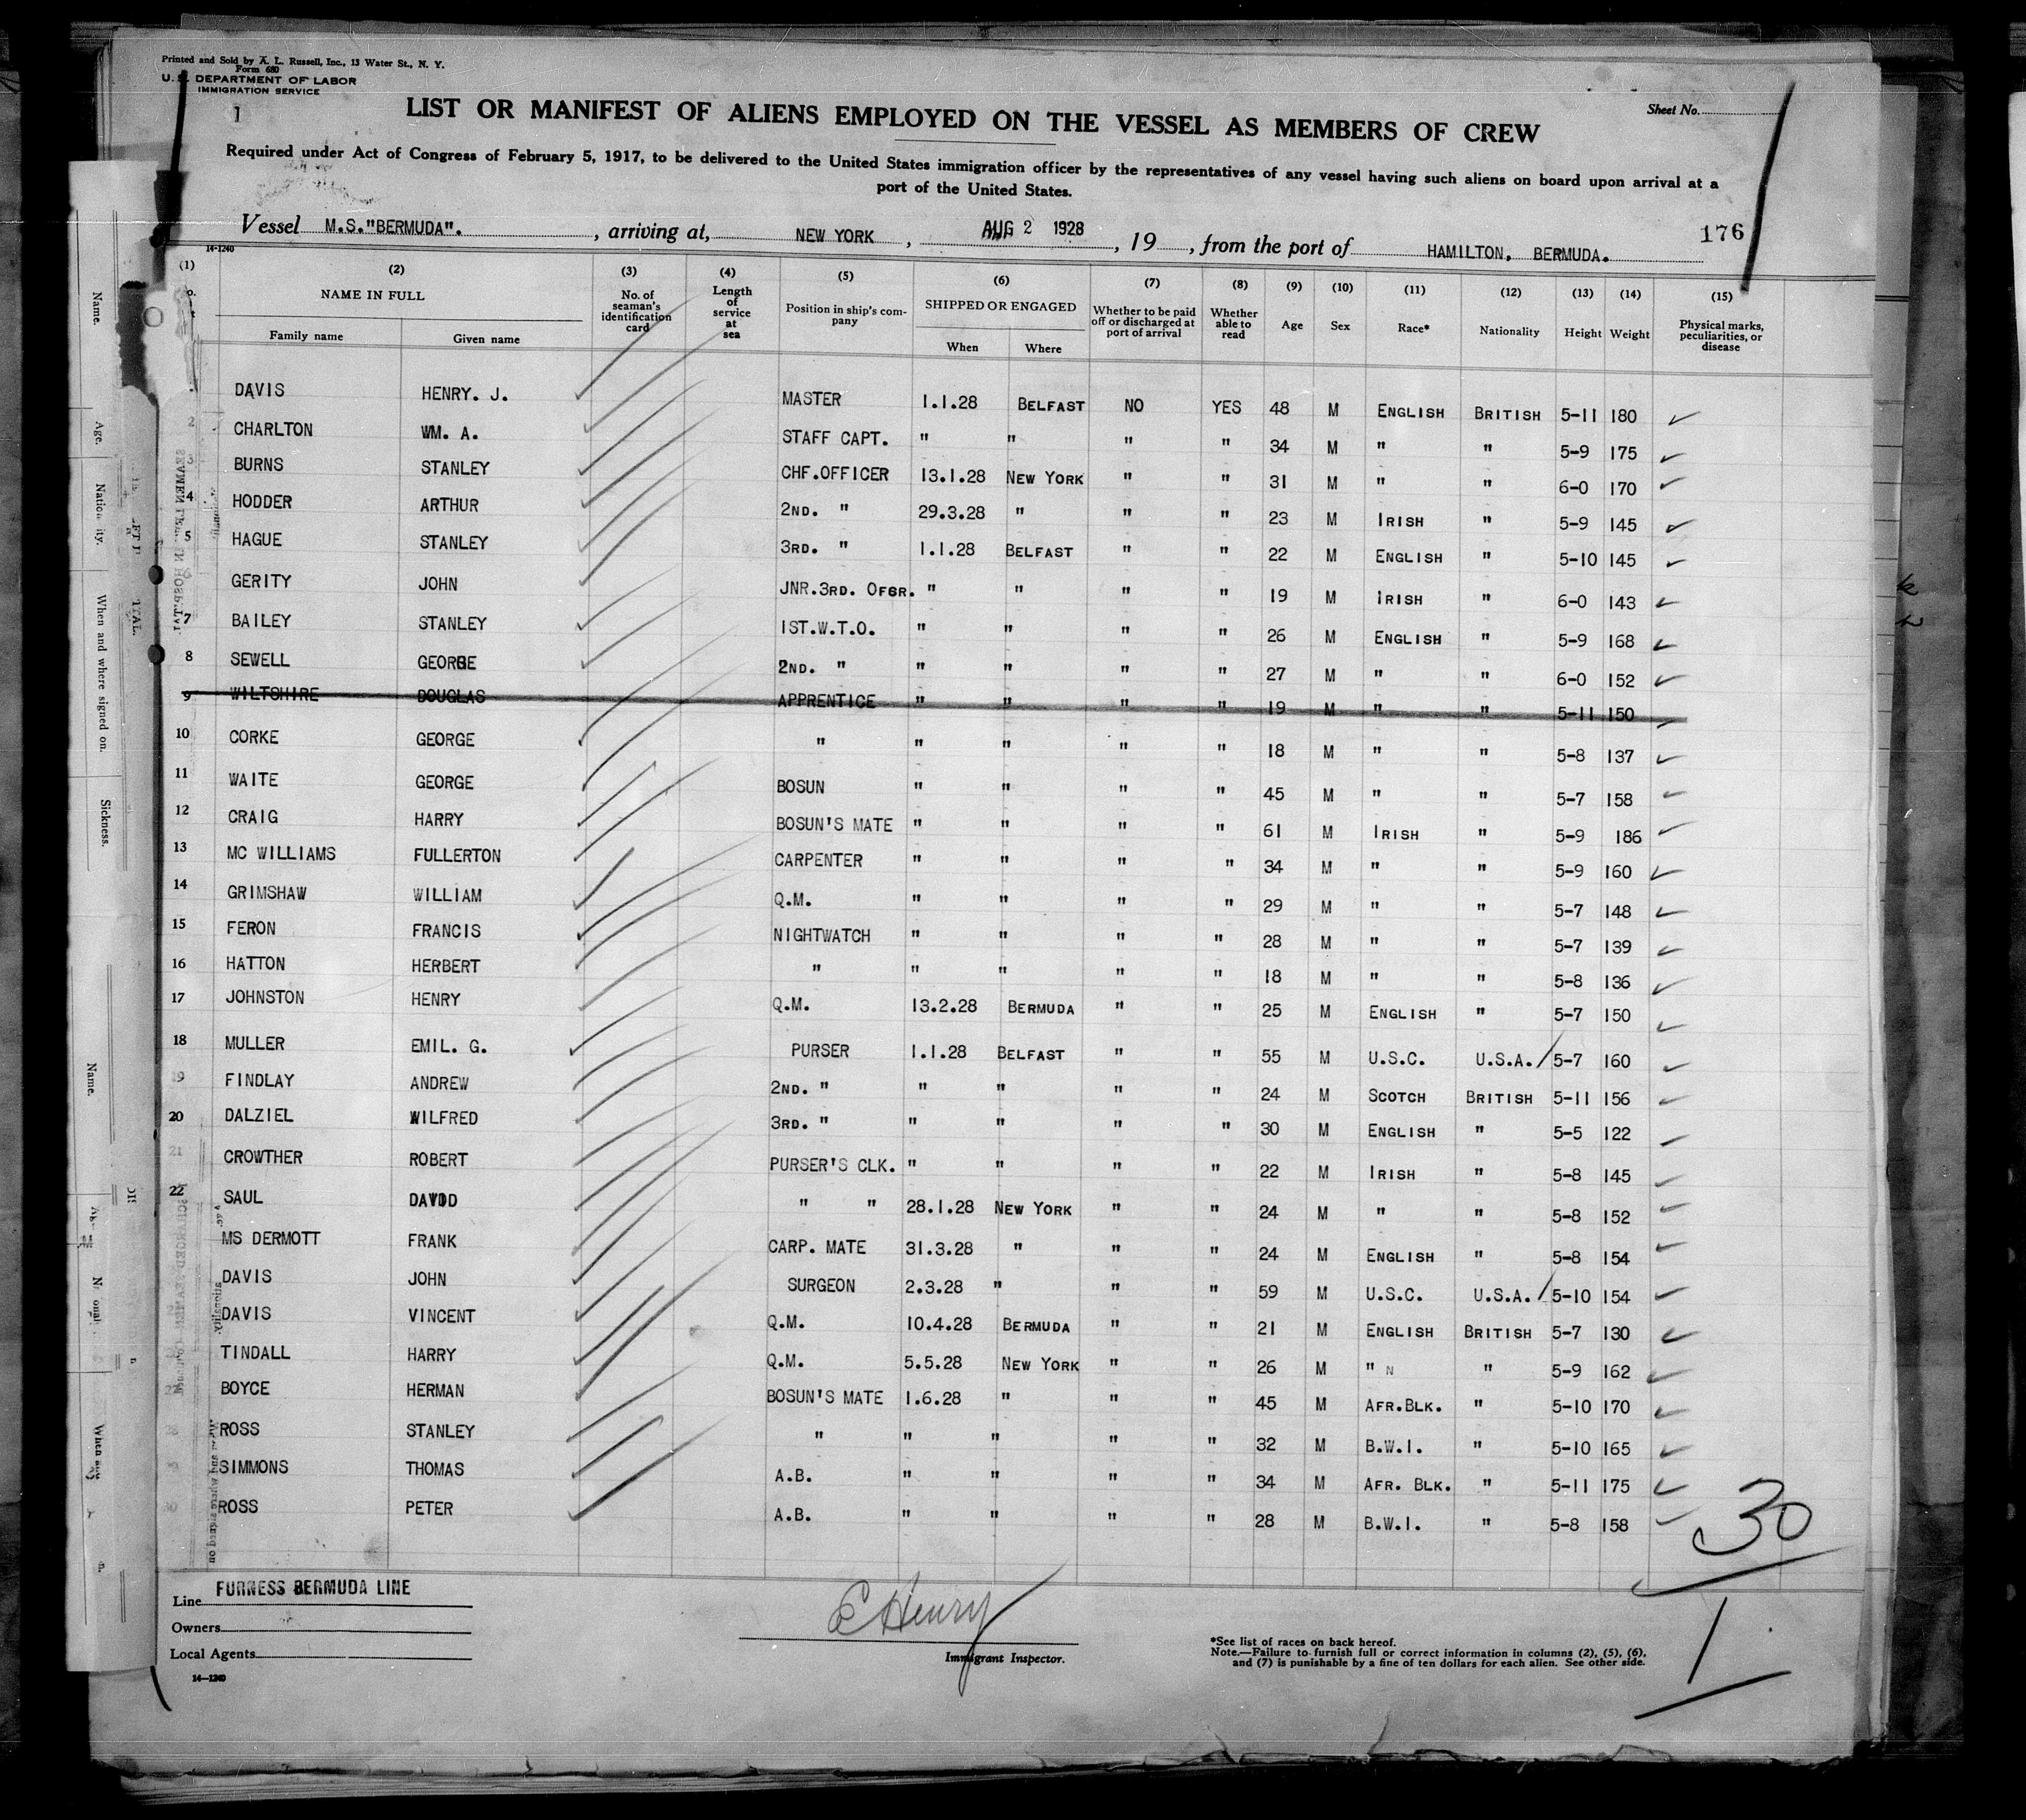 Printed and Sold by A. L. Russell, Inc., 13 Water St., N. Y.
Form 680
U. S. DEPARTMENT OF LABOR
IMMIGRATION SERVICE
1
Sheet No.
LIST OR MANIFEST OF ALIENS EMPLOYED ON THE VESSEL AS MEMBERS OF CREW
Required under Act of Congress of February 5, 1917, to be delivered to the United States immigration officer by the representatives of any vessel having such aliens on board upon arrival at a
port of the United States.
Vessel M.S."BERMUDA". , arriving at, NEW YORK , AUG 2 1928 , 19 , from the port of HAMILTON, BERMUDA.
176
14-1240
(1) (2) (3) (4) (5) (6) (7) (8) (9) (10) (11) (12) (13) (14) (15)
NAME IN FULL No. of seaman's identification card Length of service at sea Position in ship's company SHIPPED OR ENGAGED Whether to be paid off or discharged at port of arrival Whether able to read Age Sex Race* Nationality Height Weight Physical marks, peculiarities, or disease
Family name Given name When Where
DAVIS HENRY. J. MASTER 1.1.28 BELFAST NO YES 48 M ENGLISH BRITISH 5-11 180
2 CHARLTON WM. A. STAFF CAPT. " " " " 34 M " " 5-9 175
3 BURNS STANLEY CHF.OFFICER 13.1.28 NEW YORK " " 31 M " " 6-0 170
4 HODDER ARTHUR 2ND. " 29.3.28 " " " 23 M IRISH " 5-9 145
5 HAGUE STANLEY 3RD. " 1.1.28 BELFAST " " 22 M ENGLISH " 5-10 145
6 GERITY JOHN JNR.3RD. OFSR. " " " " 19 M IRISH " 6-0 143
7 BAILEY STANLEY 1ST.W.T.O. " " " " 26 M ENGLISH " 5-9 168
8 SEWELL GEORGE 2ND. " " " " " 27 M " " 6-0 152
9 WILTSHIRE DOUGLAS APPRENTICE " " " " 19 M " " 5-11 150
10 CORKE GEORGE " " " " " 18 M " " 5-8 137
11 WAITE GEORGE BOSUN " " " " 45 M " " 5-7 158
12 CRAIG HARRY BOSUN'S MATE " " " " 61 M IRISH " 5-9 186
13 MC WILLIAMS FULLERTON CARPENTER " " " " 34 M " " 5-9 160
14 GRIMSHAW WILLIAM Q.M. " " " " 29 M " " 5-7 148
15 FERON FRANCIS NIGHTWATCH " " " " 28 M " " 5-7 139
16 HATTON HERBERT " " " " " 18 M " " 5-8 136
17 JOHNSTON HENRY Q.M. 13.2.28 BERMUDA " " 25 M ENGLISH " 5-7 150
18 MULLER EMIL. G. PURSER 1.1.28 BELFAST " " 55 M U.S.C. U.S.A. 5-7 160
19 FINDLAY ANDREW 2ND. " " " " " 24 M SCOTCH BRITISH 5-11 156
20 DALZIEL WILFRED 3RD. " " " " " 30 M ENGLISH " 5-5 122
21 CROWTHER ROBERT PURSER'S CLK. " " " " 22 M IRISH " 5-8 145
22 SAUL DAVID " " 28.1.28 NEW YORK " " 24 M " " 5-8 152
MS DERMOTT FRANK CARP. MATE 31.3.28 " " " 24 M ENGLISH " 5-8 154
DAVIS JOHN SURGEON 2.3.28 " " " 59 M U.S.C. U.S.A. 5-10 154
DAVIS VINCENT Q.M. 10.4.28 BERMUDA " " 21 M ENGLISH BRITISH 5-7 130
TINDALL HARRY Q.M. 5.5.28 NEW YORK " " 26 M " N " 5-9 162
BOYCE HERMAN BOSUN'S MATE 1.6.28 " " " 45 M AFR.BLK. " 5-10 170
ROSS STANLEY " " " " " 32 M B.W.I. " 5-10 165
SIMMONS THOMAS A.B. " " " " 34 M AFR. BLK. " 5-11 175
ROSS PETER A.B. " " " " 28 M B.W.I. " 5-8 158
30
1
Line FURNESS BERMUDA LINE
Owners
Local Agents
14-1240
E Henry
Immigrant Inspector.
*See list of races on back hereof.
Note.—Failure to furnish full or correct information in columns (2), (5), (6),
and (7) is punishable by a fine of ten dollars for each alien. See other side.
Name.
Age.
Nationality.
When and where signed on.
Sickness.
Name.